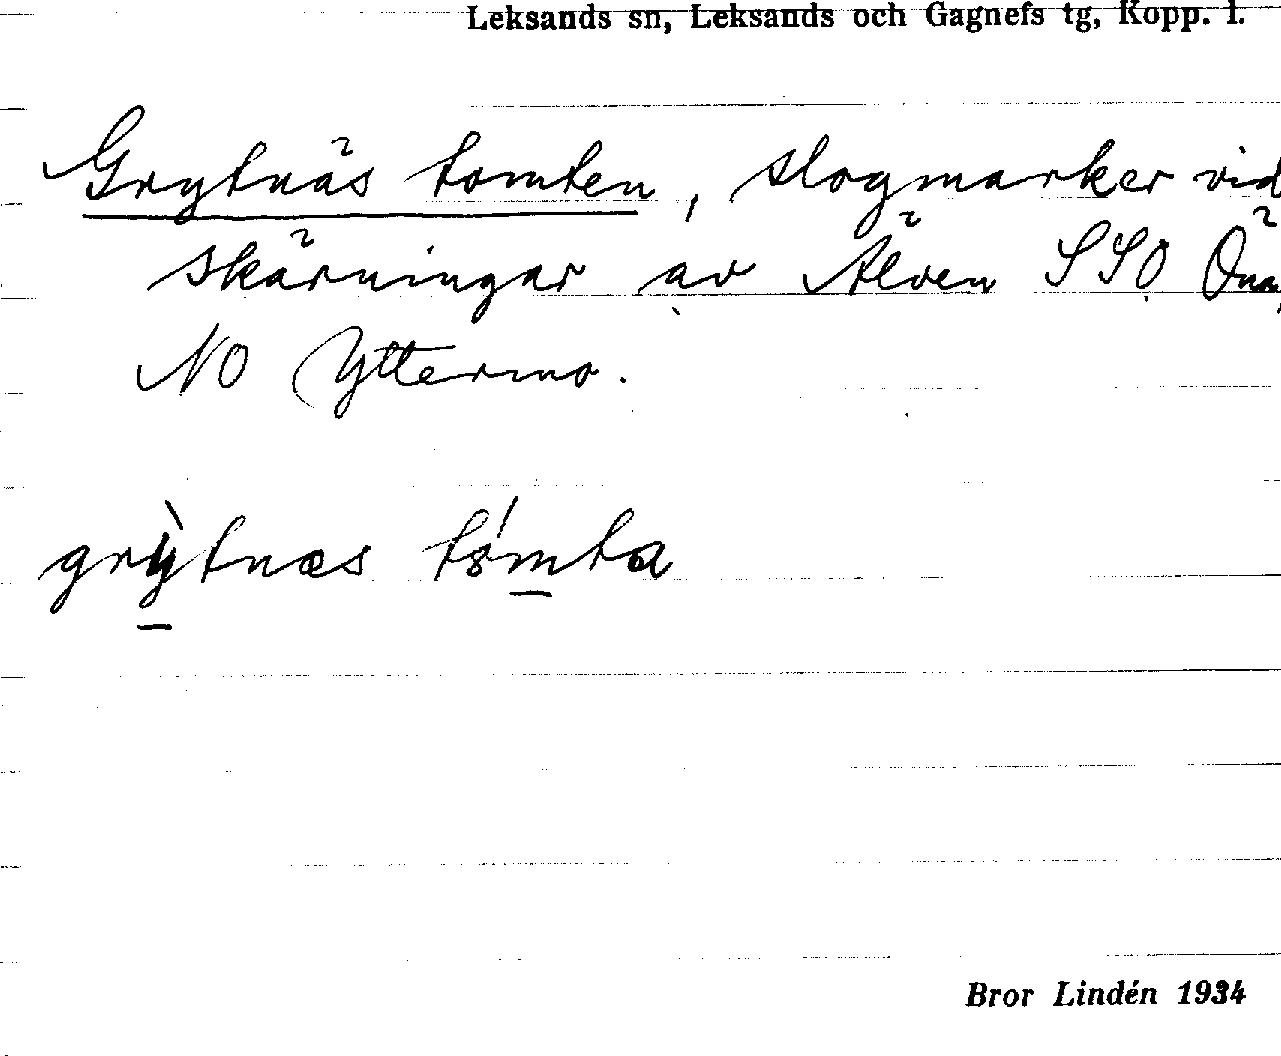 Leksands sn, Leksands och Gagnefs tg, Kopp. l.
Grytnäs tomten, slogmarker vid
skärningar av Älven SSO Öna,
NO Yttermo.
grỳtnæs tǿmta
Bror Lindén 1934